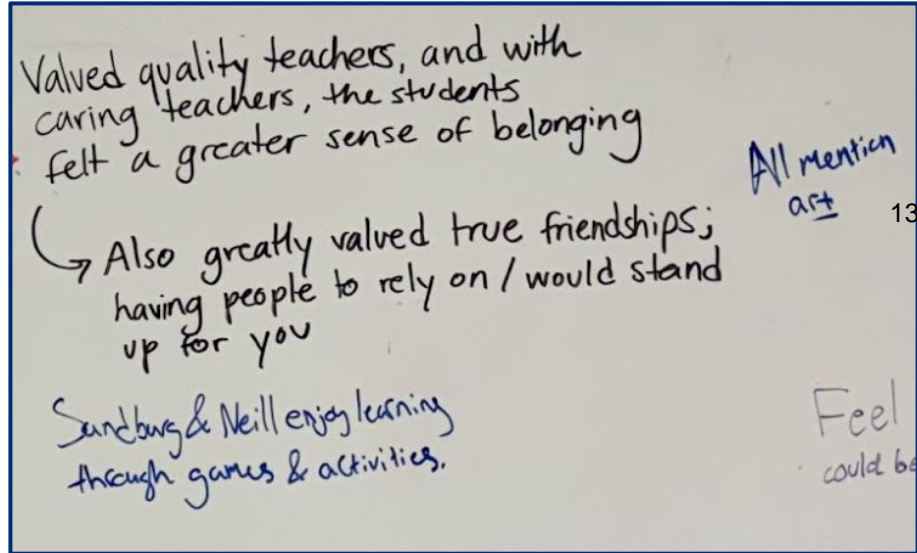 Valued quality teachers, and with
caring teachers, the students
felt a greater sense of belonging
All mention
art
13
Also greatly valued true friendships;
having people to rely on / would stand
up for you
Sandburg & Neill enjoy learning
through games & activities.
Feel
could be